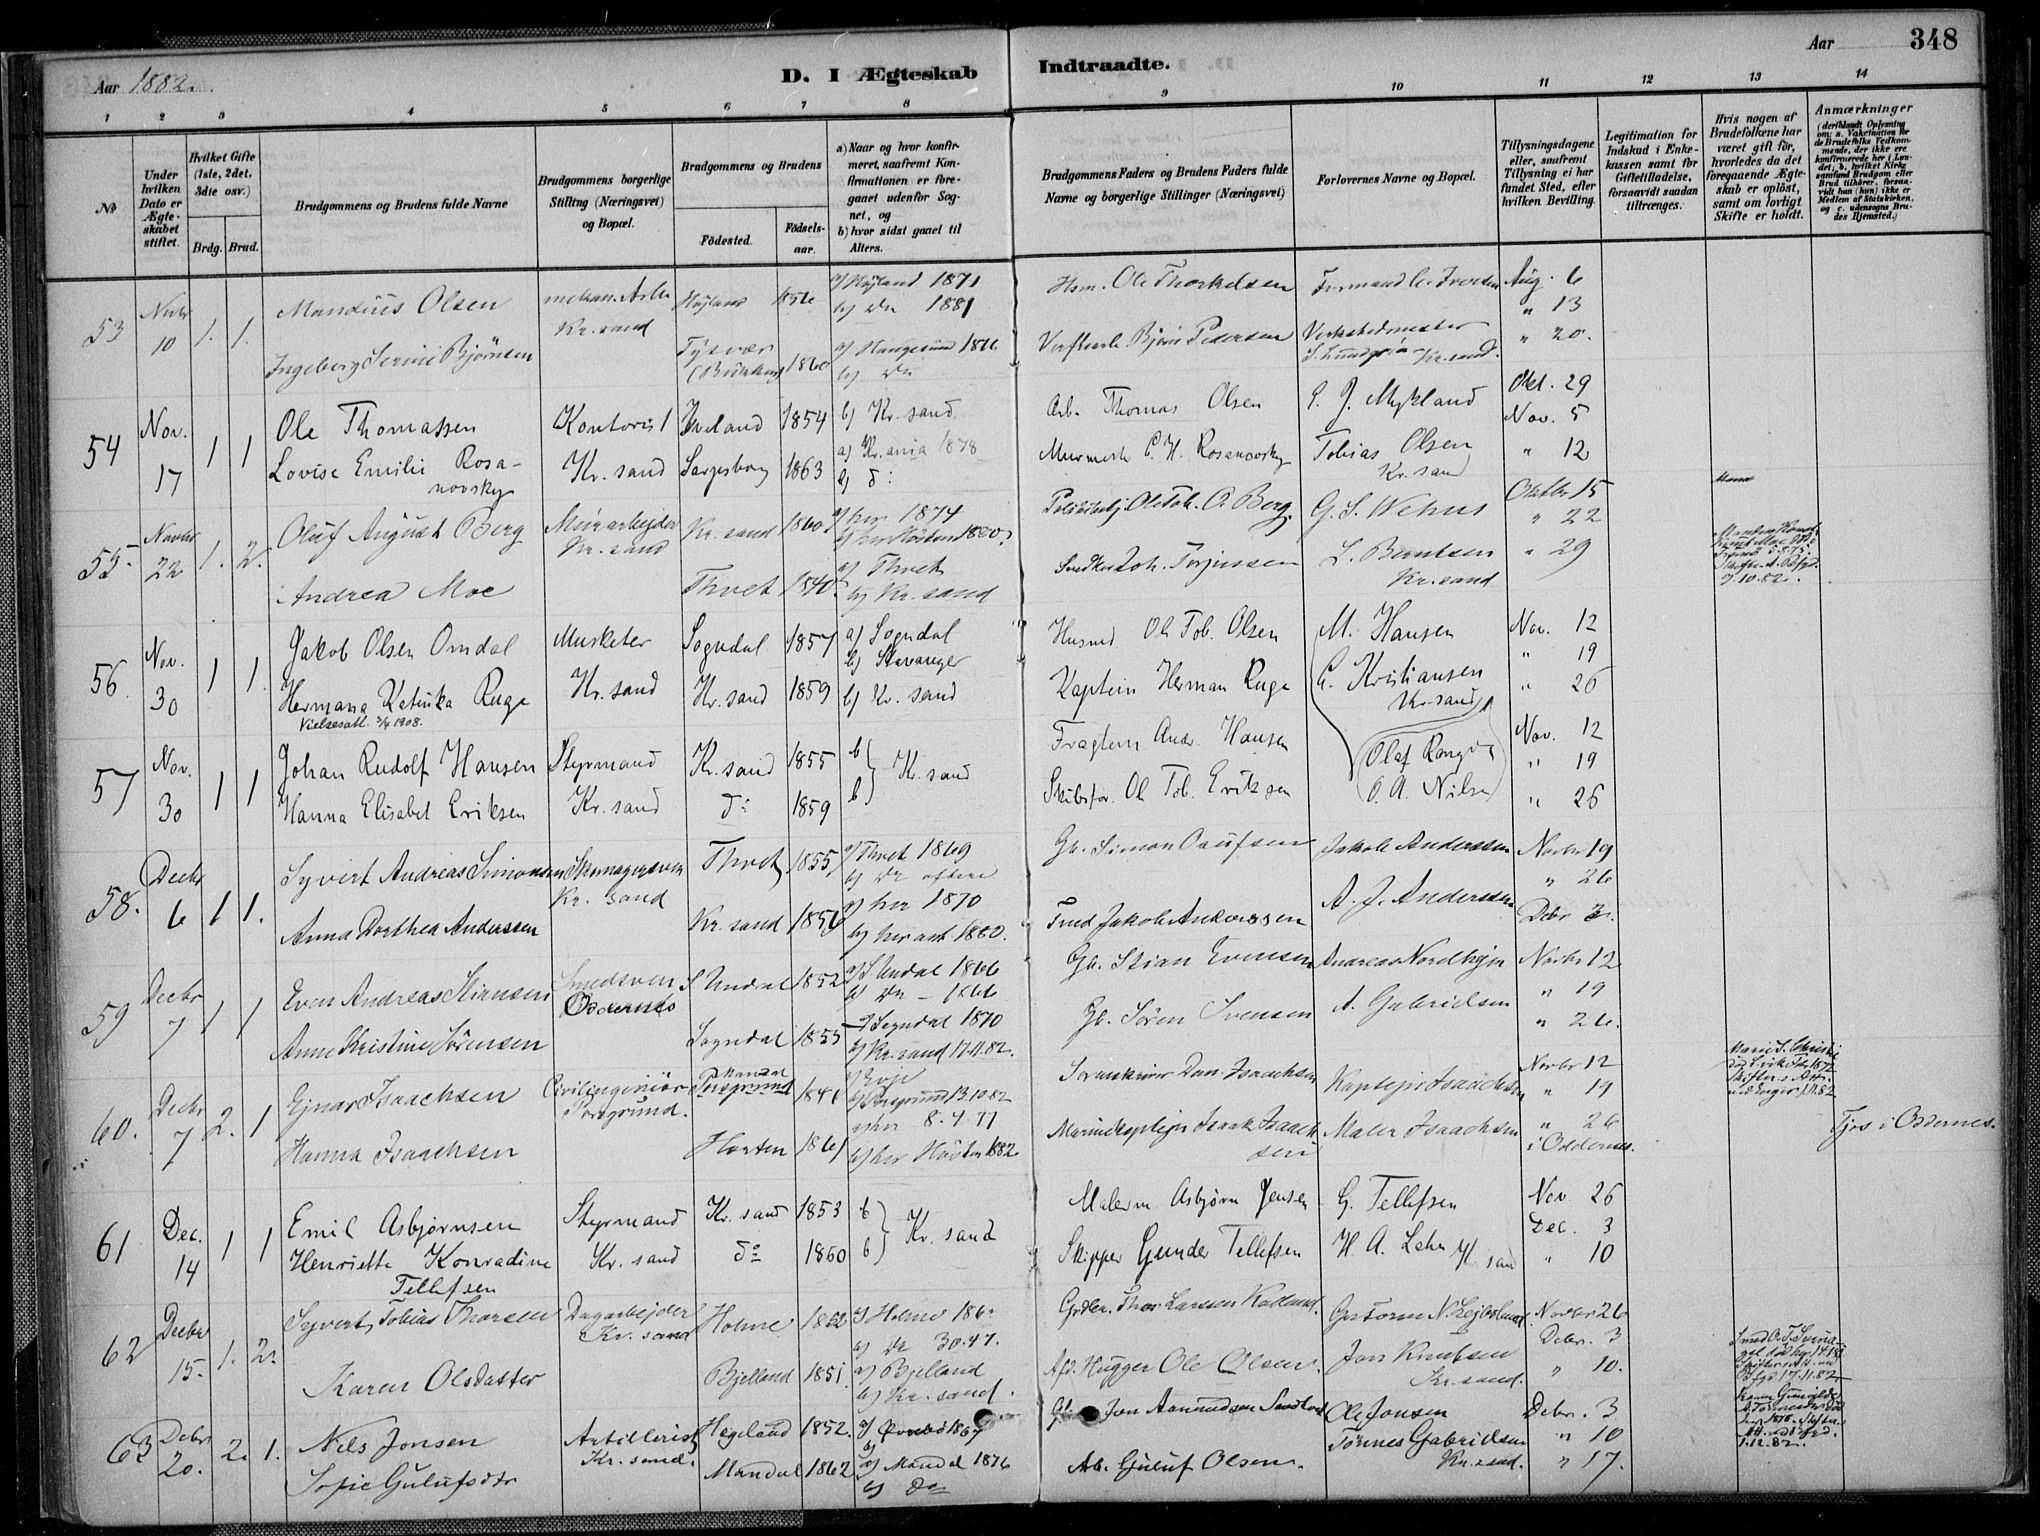 Aar 1882.
D. I Ægteskab Indtraadte.
Aar 348
1 2 3 4 5 6 7 8 9 10 11 12 13 14
No
Under hvilken Dato er Ægteskabet stiftet.
Hvilket Gifte (1ste, 2det, 3die osv.)
Brdg. Brud.
Brudgommens og Brudens fulde Navne
Brudgommens borgerlige Stilling (Næringsvei) og Bopæl.
Brudgommens og Brudens
Födested. Födselsaar.
a) Naar og hvor konfirmeret, saafremt Konfirmationen er foregaaet udenfor Sognet, og b) hvor sidst gaaet til Alters.
Brudgommens Faders og Brudens Faders fulde Navne og borgerlige Stillinger (Næringsvei)
Forlovernes Navne og Bopæl.
Tillysningsdagene eller, saafremt Tillysning ei har fundet Sted, efter hvilken Bevilling.
Legitimation for Indskud i Enkekassen samt for Giftetilladelse, forsaavidt saadan tiltrænges.
Hvis nogen af Brudefolkene har været gift før, hvorledes da det foregaaende Ægteskab er oplöst, samt om lovligt Skifte er holdt.
Anmærkninger (deriblandt Oplysning om: a. Vakcination for de Brudefolks Vedkommende, der ikke ere konfirmerede her i Landet, b. hvilket Kirkesamfund Brudgom eller Brud tilhörer, forsaavidt han (hun) ikke er Medlem af Statskirken, og c. udensogns Brudes Hjemsted.)
53 Novbr 10 1. 1. Mandius Olsen Kr. sand Høyland 1856 a) Høyland 1871 b) Do 1881 Hsm. Ole Thorkelsen Aug. 6 " 13
Ingeborg Serine Bjørnsen Tysvær 1860 a) Haugesund b) Do Bjørn Pedersen Kr. sand. " 20.
54 Nov. 17 1 1 Ole Thomassen Kontorist Iveland 1854 b) Kr. sand Arb. Thomas Olsen P. J. Mykland Okt. 29 Nov. 5
Lovise Emilie Rosanovsky Kr. sand Sarpsborg 1863 a) Kr.ania 1878 b) do Murmester C. H. Rosanovsky Tobias Olsen Kr. sand " 12
55 Novbr 22 1. 2. Oluf August Berg Murarbejder Kr. sand Kr. sand 1860 a) her 1874 b) her Høsten 1880 Berg. G. S. Wehus Oktbr 15 " 22
Andrea Moe Thvet 1840 a) Thvet b) Kr. sand Snedker Joh. Torjussen L. Berntsen Kr. sand " 29
56 Nov. 30 1 1. Jakob Olsen Omdal Musketer Sogndal 1857 a) Sogndal b) Stavanger Husmd Ole Tob. Olsen M. Hansen Nov. 12 " 19
Hermana Katinka Ruge Kr. sand Kr. sand 1859 b) Kr. sand Kaptein Herman Ruge C. Kristiansen Kr. sand " 26
Vielsesatt. 3/4 1908.
57 Nov. 30 1 1 Johan Rudolf Hansen Styrmand Kr. sand 1855 b Kr. sand Andr. Hansen Olaf Nov. 12 " 19
Hanna Elisabet Eriksen Kr. sand do 1859 b Skibsfør. Ole Tob. Eriksen O. A. Nilsen " 26
58. Decbr 6 1 1. Syvert Andreas Simonsen Skomagersvend Kr. sand Thvet 1855 a) Thvet 1869 b) Do oftere Gb. Simon Jakob Anderssen Novbr 19 " 26
Anna Dorthea Anderssen Kr. sand 1856 a) her 1870 b) her 1880. Jakob Anderssen A. J. Anderssen Debr 3.
59 Decbr 7 1 1 Even Andreas Stiansen Smedsvend Oddernes S. Undal 1852 a) S. Undal 1866 b) Do Gb. Stian Evensen Andreas Novbr 12 " 19
Anne Kristine Sørensen Sogndal 1855 a) Sogndal 1870 b) Kr. sand 17.11.82. Gb. Søren Svensen A. Gabrielsen " 26.
60. Decbr 7 2. 1 Ejnar Isaachsen Civilingeniør Porsgrund. Mandal 1841 b) Porsgrund 13.10.82 Sorenskriver Dan. Isaachsen Kaptejn Isaachsen Novbr 12 " 19
Hanna Isaachsen Horten 1861 a) her 8.4.77 b) her Høsten 1882. Marinekaptejn Isaak Isaachsen Maler Isaachsen " 26 i Oddernes. i Oddernes.
61 Dec. 14 1 1 Emil Asbjørnsen Styrmand Kr. sand 1853 b Kr. sand Malerm Asbjørn Jensen G. Tellefsen Nov. 26 Dec. 3
Henriette Konradine Tellefsen Kr. sand do 1860 b Skipper Gunder Tellefsen H. A. Kr. sand " 10
62 Decbr 15. 1. 2. Syvert Tobias Thorsen Dagarbejder Kr. sand Holme 1852 a) Holme b) Do Thor Larssen Novbr 26 Debr. 3
Karen Olsdatter Bjelland 1851. a) Bjelland b) Kr. sand. Ole Olsen. Jon Knutsen Kr. sand. " 10.
63 Debr 20. 2. 1. Nils Jonsen Artillerist Kr. sand. Hægeland 1852. a) Øvrebø 1867 b) Gb. Jon Aanundsen Ole Jonsen Debr. 3 " 10
Sofie Gulufsdtr Mandal 1862 a) Mandal 1876 b) Do Arb. Guluf Olsen. Tønnes Gabrielsen Kr. sand. " 17.